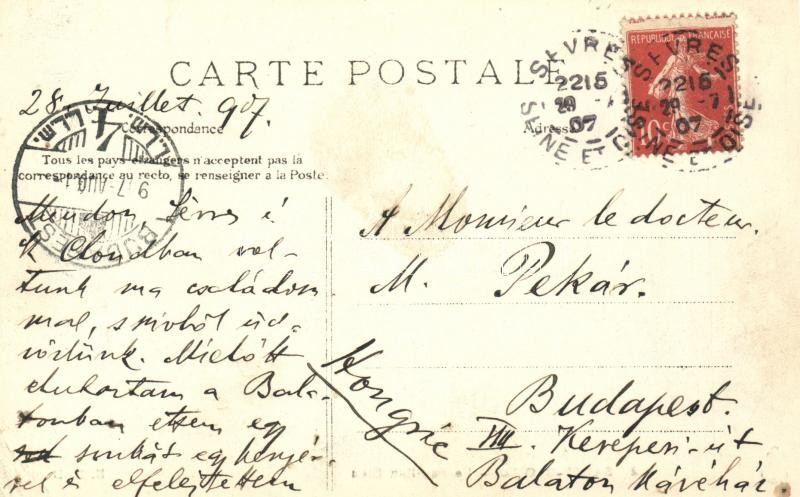 CARTE POSTALE
28. Juillet. 907.
Correspondance
Adresse
Tous les pays étrangers n'acceptent pas la
correspondance au recto, se renseigner à la Poste.
RÉPUBLIQUE FRANÇAISE
10c
SÈVRES
22 15
29 -7
07
SEINE ET OISE
SÈVRES
22 15
29 -7
07
SEINE ET OISE
BUDAPEST
907 AUG 1
Meudon, Sèvres i
St Cloudban vol-
tunk ma családom
mal, szivből üd-
vözlünk. Mielőtt
elutaztam a Bala-
tonban ettem egy
sonkát egy kenyér
rel és elfelejtettem
A Monsieur le docteur.
M. Pekár.
Hongrie
Budapest.
VIII. Kerepesi-út
Balaton Kávéház